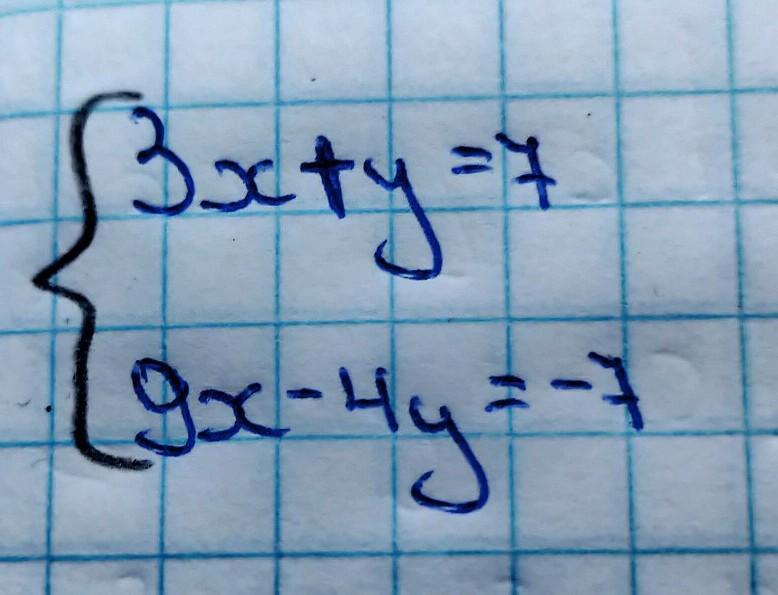 3x+y=7
9x-4y=-7